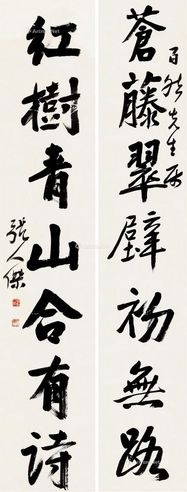 百先生
蒼藤翠壁初無路
紅樹青山合有詩
張人傑